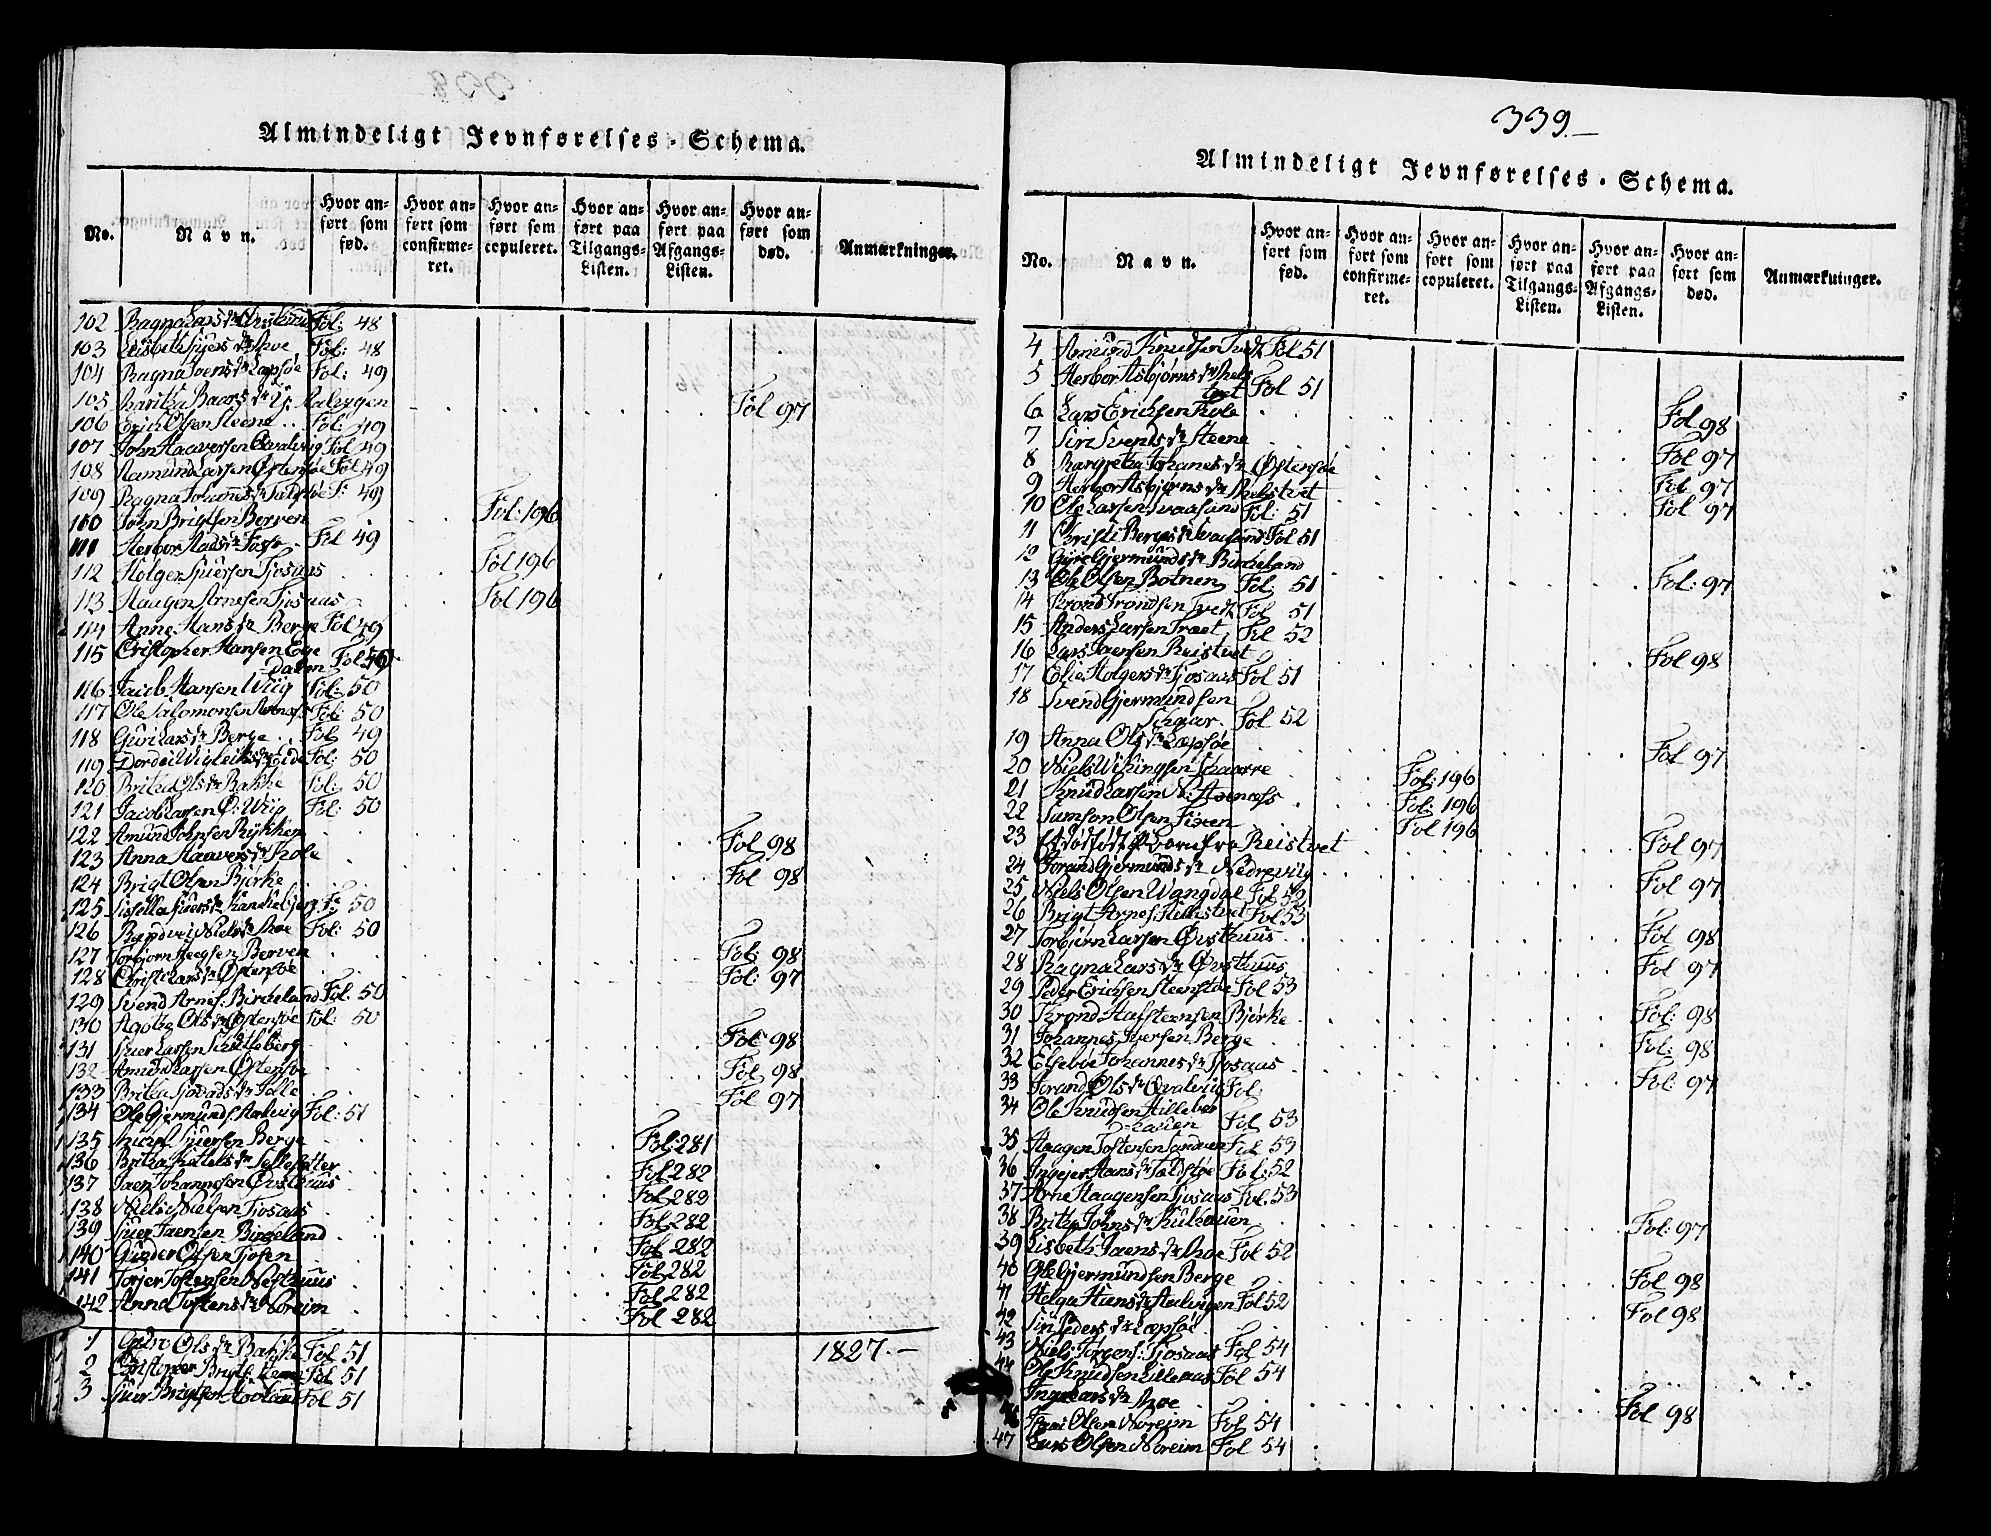 Almindeligt Jevnførelses-Schema.
No.
Navn.
Hvor anført som fød.
Hvor anført som confirmeret.
Hvor anført som copuleret.
Hvor anført paa Tilgangs-Listen.
Hvor anført paa Afgangs-Listen.
Hvor anført som død.
Anmærkninger.
102 Ragna Lars Dr Øvsthuus Fol: 48
103 Lisbeth Sjurs Dr Moe Fol: 48
104 Ragna Joens Dr Læpsøe Fol: 49
105 Maritha Baars Dr Y: Aalvigen Fol 97
106 Erich Olsen Steene Fol: 49
107 John Haaversen Qvalvig Fol 49
108 Aamund Larsen Østensøe Fol 49
109 Ragna Johannes Dr F: 49
110 John Brigtsen Berven Fol: 196
111 Herbor Mads Dr Fosse Fol 49
112 Holger Sjursen Tjosaas Fol 196
113 Haagen Arnesen Tjosaas Fol 196
114 Anne Hans Dr Berge Fol 49
115 Cristopher Hansen Ege
dalen Fol 50
116 Jacob Hansen Wiig Fol: 50
117 Ole Salomonsen Fol: 50
118 Guri Lars Dr Berge Fol 49
119 Dordei Wigleiks Dr Eide Fol: 50
120 Britha Ols Dr Bakke Fol: 50
121 Jacob Larsen Ø: Wiig Fol: 50
122 Amund Johnsen Rykken Fol 98
123 Anna Haavers Dr Fol 98
124 Brigt Olsen Bjørke
125 Sissella Sjurs Dr F: 50
126 Randvei Niels Dr Moe Fol: 50
127 Torbjørn Berven Fol: 98
128 Christi Lars Dr Østensøe Fol: 97
129 Svend Arnes: Birkeland Fol. 50
130 Agotha Ols Dr Østensøe Fol: 50
131 Sjur Larsen Skutleberg Fol: 98
132 Amund Larsen Østensøe Fol. 98
133 Britha Sjovads Dr Fol 97
134 Ole Gjermunds: Aalvig Fol: 51
135 Sjursen Berge Fol. 281
136 Britha Ketels Dr Fol 282
137 Jaen Johannesen Øvsthuus Fol. 283
138 Niels Nielsen Tjosaas Fol. 282
139 Sjur Jaensen Birgeland Fol 282
140 Gunder Olsen Tjosen Fol. 282
141 Torjer Tostensen Nesthuus Fol 282
142 Anna Tostens Dr Noreim Fol 282
1827.-
1 Ols Dr Bakke Fol 51
2 Cristopher Brigts: Fol 51
3 Sjur Brigtsen Fol 51
339.-
Almindeligt Jevnførelses-Schema.
No.
Navn.
Hvor anført som fød.
Hvor anført som confirmeret.
Hvor anført som copuleret.
Hvor anført paa Tilgangs-Listen.
Hvor anført paa Afgangs-Listen.
Hvor anført som død.
Anmærkninger.
4 Amund Knudsen Fol 51
5 Herbor Asbjørns Dr
tvet Fol 51
6 Lars Erichsen Fol 98
7 Siri Svends Dr Steene Fol 97
8 Margretha Johannes Dr Østensøe Fol 97
9 Herbor Asbjørns Dr Fol 97
10 Ole Larsen Svaasand Fol: 51
11 Christi Berges Dr Svaasand Fol 51
12 Gyri Gjermunds Dr Birkeland Fol: 97
13 Ole Olsen Botnen Fol: 51
14 Trond Trondsen Tvedt Fol 51
15 Anders Larsen Træet Fol 52
16 Lars Jaensen Reistvet Fol 98
17 Elie Holgers Dr Tjosaas Fol 51
18 Svend Gjermundsen
Schaar. Fol 52
19 Anna Ols Dr Læpsøe Fol 97
20 Niels Wikingsen Schaarre Fol: 196
21 Knud Larsen N: Steenæss Fol: 196
22 Samson Olsen Fixen Fol 196
23 Et dødfødt Barn fra Reistvet Fol 97
24 Jorand Gjermunds Dr Nedrevig Fol 97
25 Niels Olsen Wangdal Fol 52
26 Brigt Arnes: Fol 53
27 Torbjørn Larsen Øvsthuus Fol 98
28 Ragna Lars Dr Øvsthuus Fol 97
29 Peder Erichsen Steenstøe Fol 53
30 Trond Halsteensen Bjørke Fol: 98
31 Johannes Iversen Berge Fol: 98
32 Elsebøe Johannes Dr Tjosaas Fol: 97
33 Jorand Ols Dr Qvalvig Fol.
34 Ole Knudsen Hilleber
hauen Fol 53
35 Haagen Tostensen Sandven Fol 53
36 Ingejer Hans Dr Fol: 52
37 Arne Haagensen Tjosaas Fol. 53
38 Britha Johns Dr Kulhauen Fol: 97
39 Lisbeth Jaens Dr Moe Fol 52
40 Ole Gjermundsen Berge Fol 98
41 Helga Hans Dr Aalvigen Fol 52
42 Siri Peders Dr Læpsøe Fol 98
43 Niels Torgens: Tjosaas Fol 54
44 Ole Knudsen Lilleaas Fol 54
Lars Dr Moe Fol 98
46 Olsen Noreim Fol 54
47 Lars Olsen Noreim Fol 54